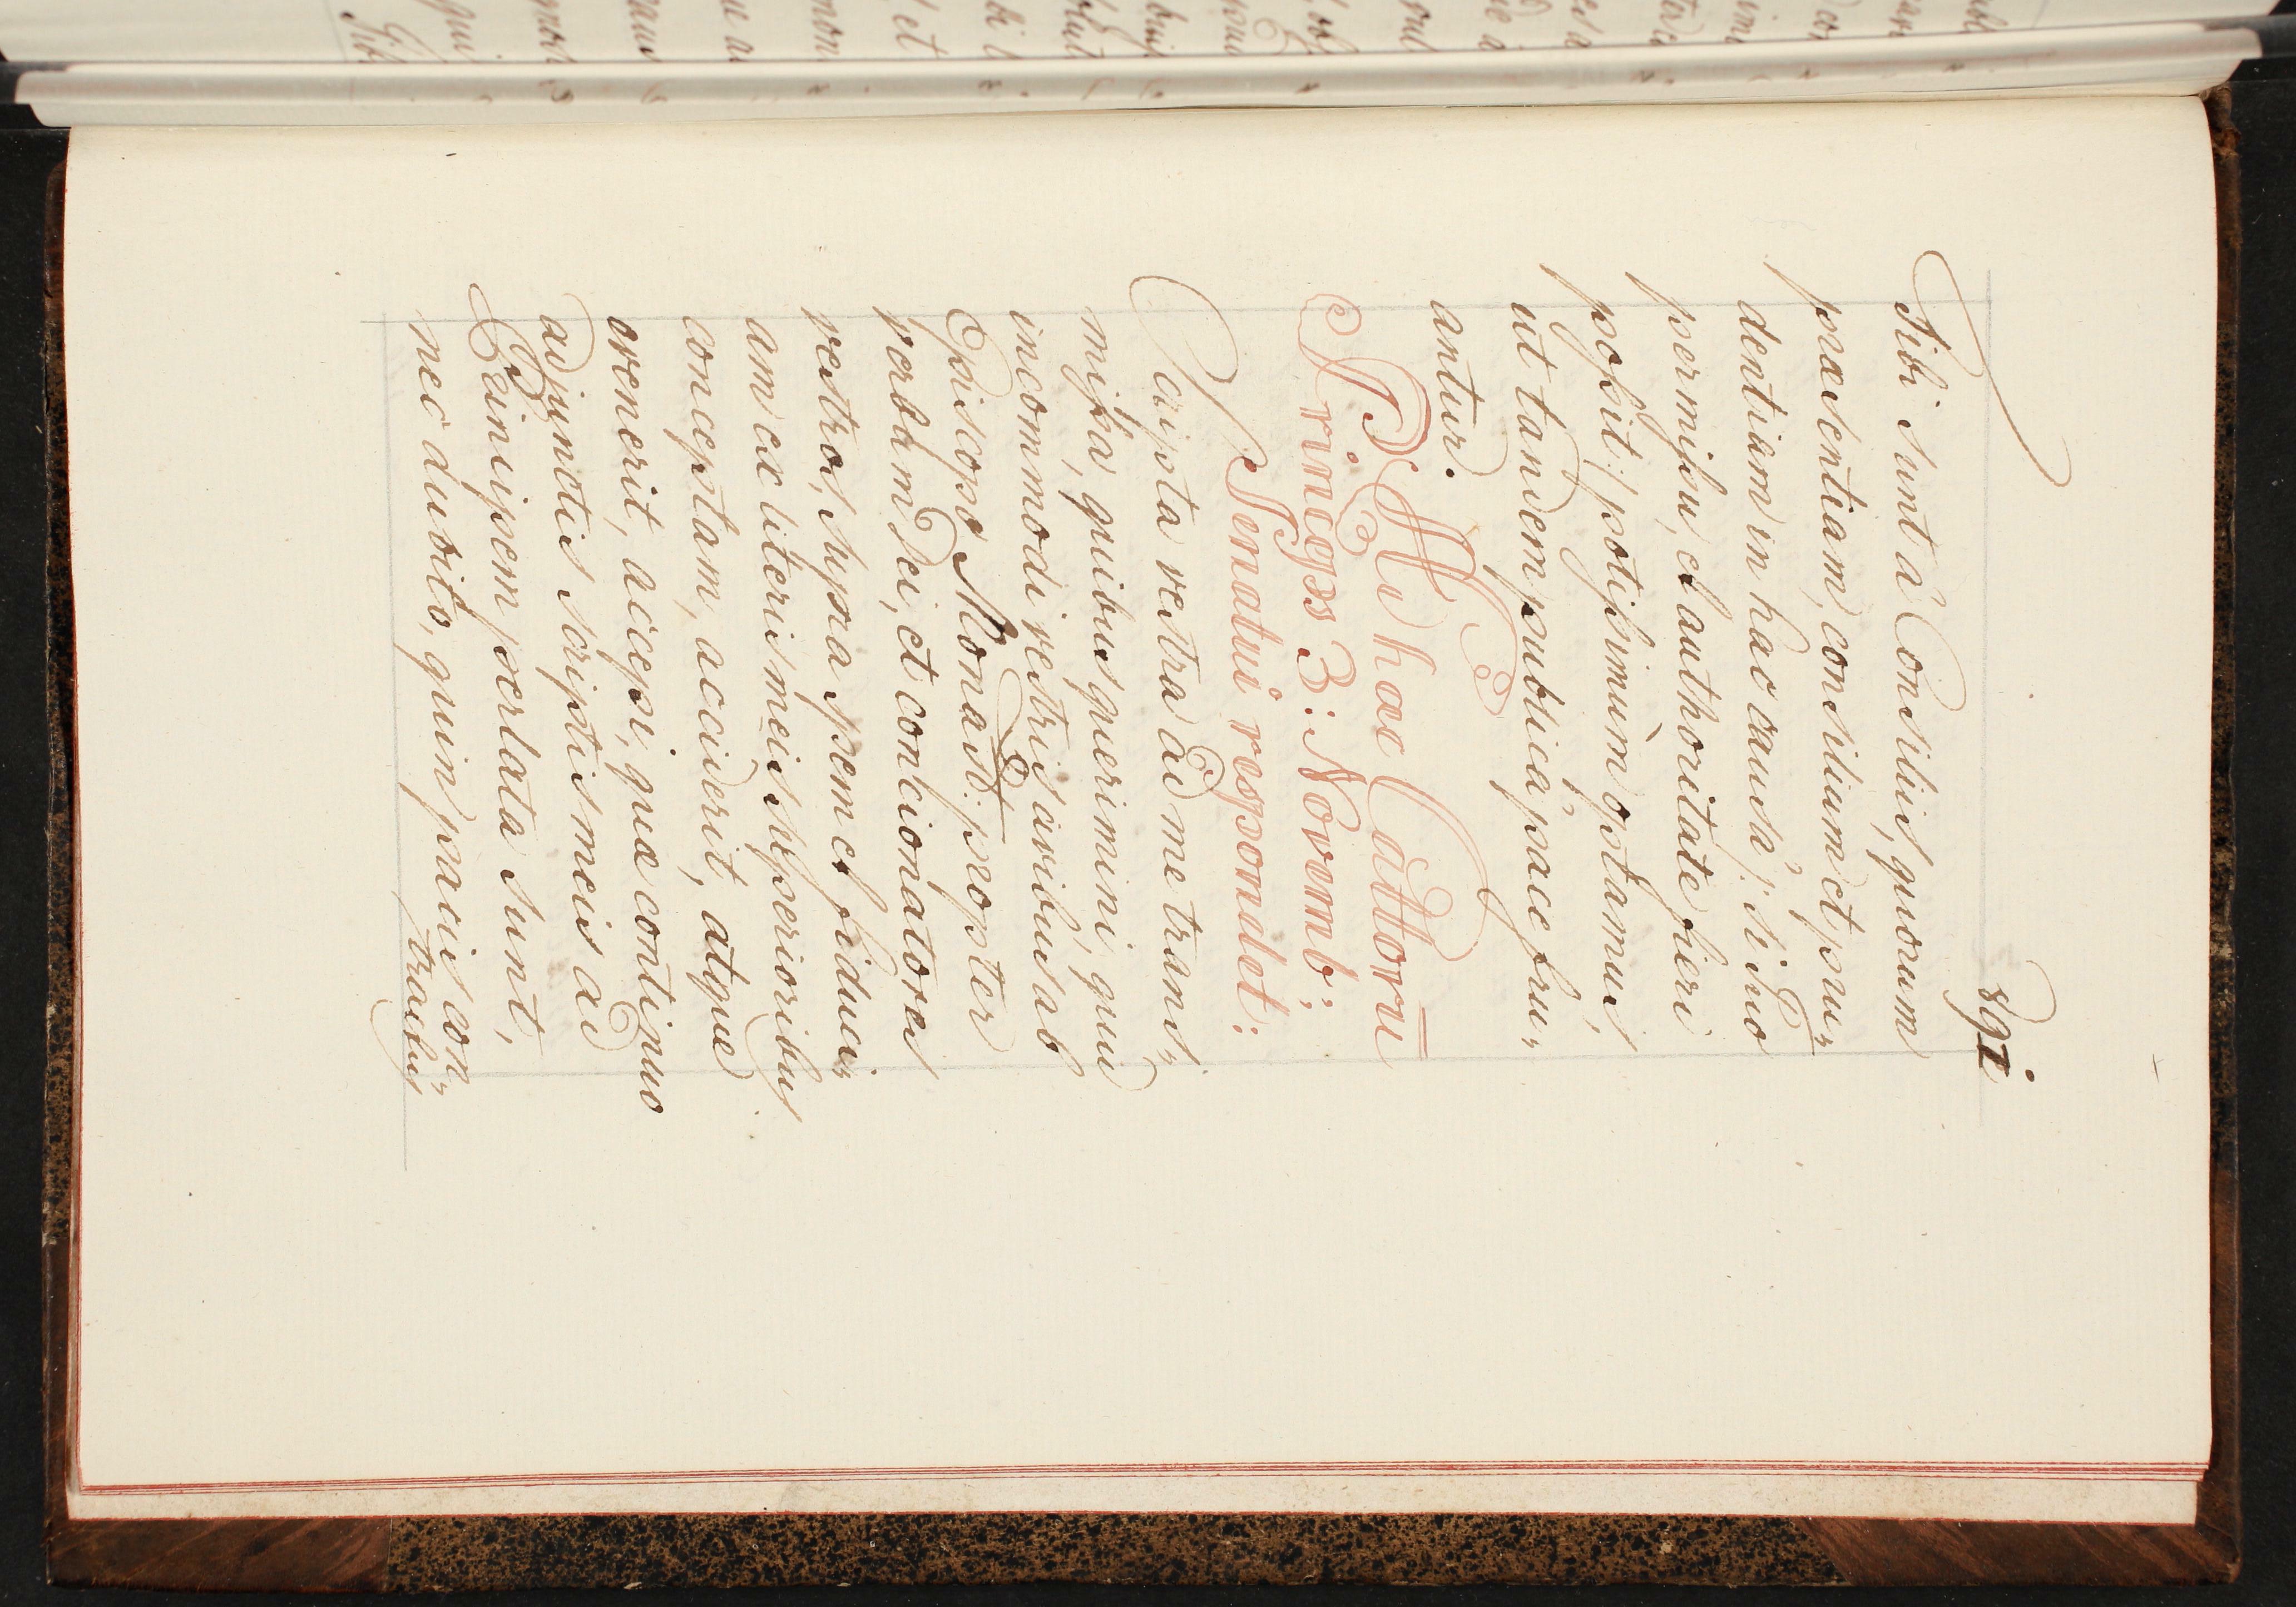 891
Sibi sunt à Consiliis, quorum
præsentiam, consilium et pru„
dentiam in hac causâ /: si suo
permissu, et authoritate fieri
possit :/ potissimùm optamus,
ut tandem publicâ pace fru„
antur.
Ad hæc Cattorū
Princeps 3: Novemb:
Senatui respondet:
Scripta vestra ad me trans„
missa, quibus querimini, quid
incommodi vestris civibus ab
Episcopo Monast: propter
verbum Dei, et concionatores
vestros, supra spem et fiduci„
am ex literis meis superioribus
conceptam, acciderit, atque
evenerit, accepi, quæ continuo
adjunctis scriptis meis ad
Principem perlata sunt,
nec dubito, quin pacis con„
tractus